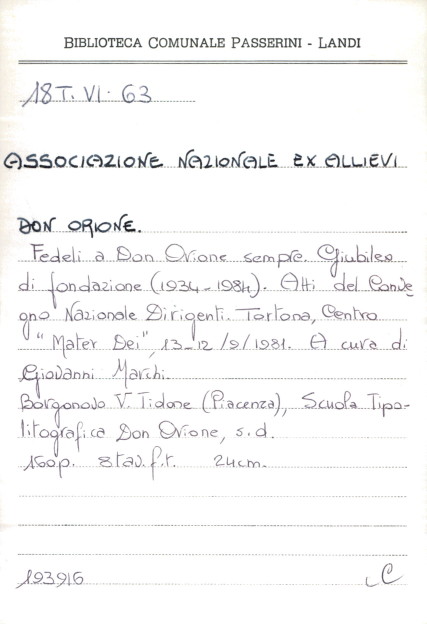 BIBLIOTECA COMUNALE PASSERINI - LANDI
18T. VI. 63
ASSOCIAZIONE NAZIONALE EX ALLIEVI
DON ORIONE.
Fedeli a Don Orione sempre. Giubileo
di fondazione (1934-1984). Atti del Conve
gno Nazionale Dirigenti. Tortona, Centro
"Mater Dei", 13-12/9/1981. A cura di
Giovanni Marchi.
Borgonovo V. Tidone (Piacenza), Scuola Tipo-
litografica Don Orione, s.d.
160p. 8 tav. f.t. 24cm.
193916 C